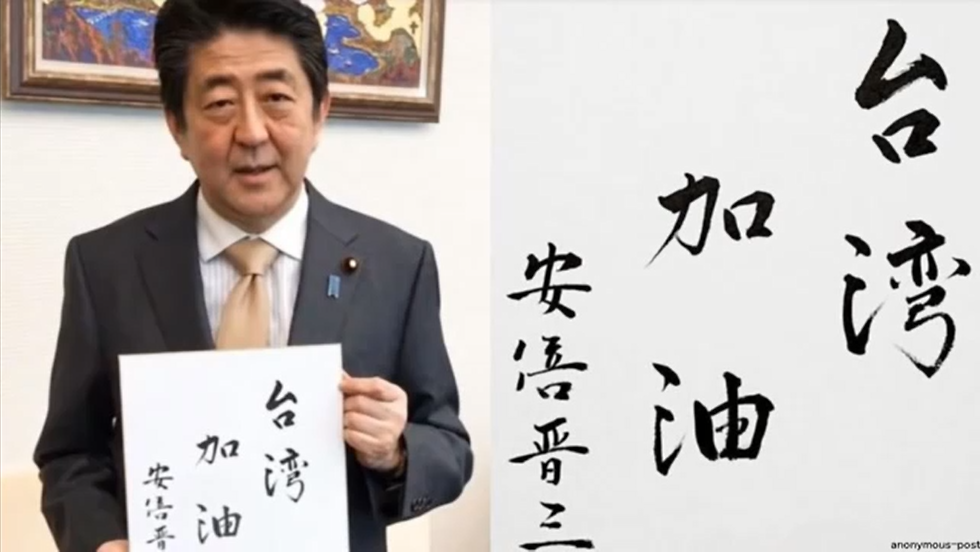 台湾
加油
安倍晋
台湾
加油
安倍晋三
anonymous-post